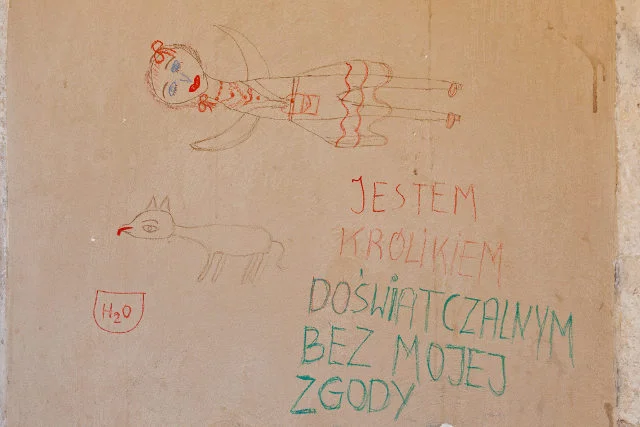 JESTEM
KRÓLIKIEM
DOŚWIATCZALNYM
BEZ MOJEJ
ZGODY
H2O